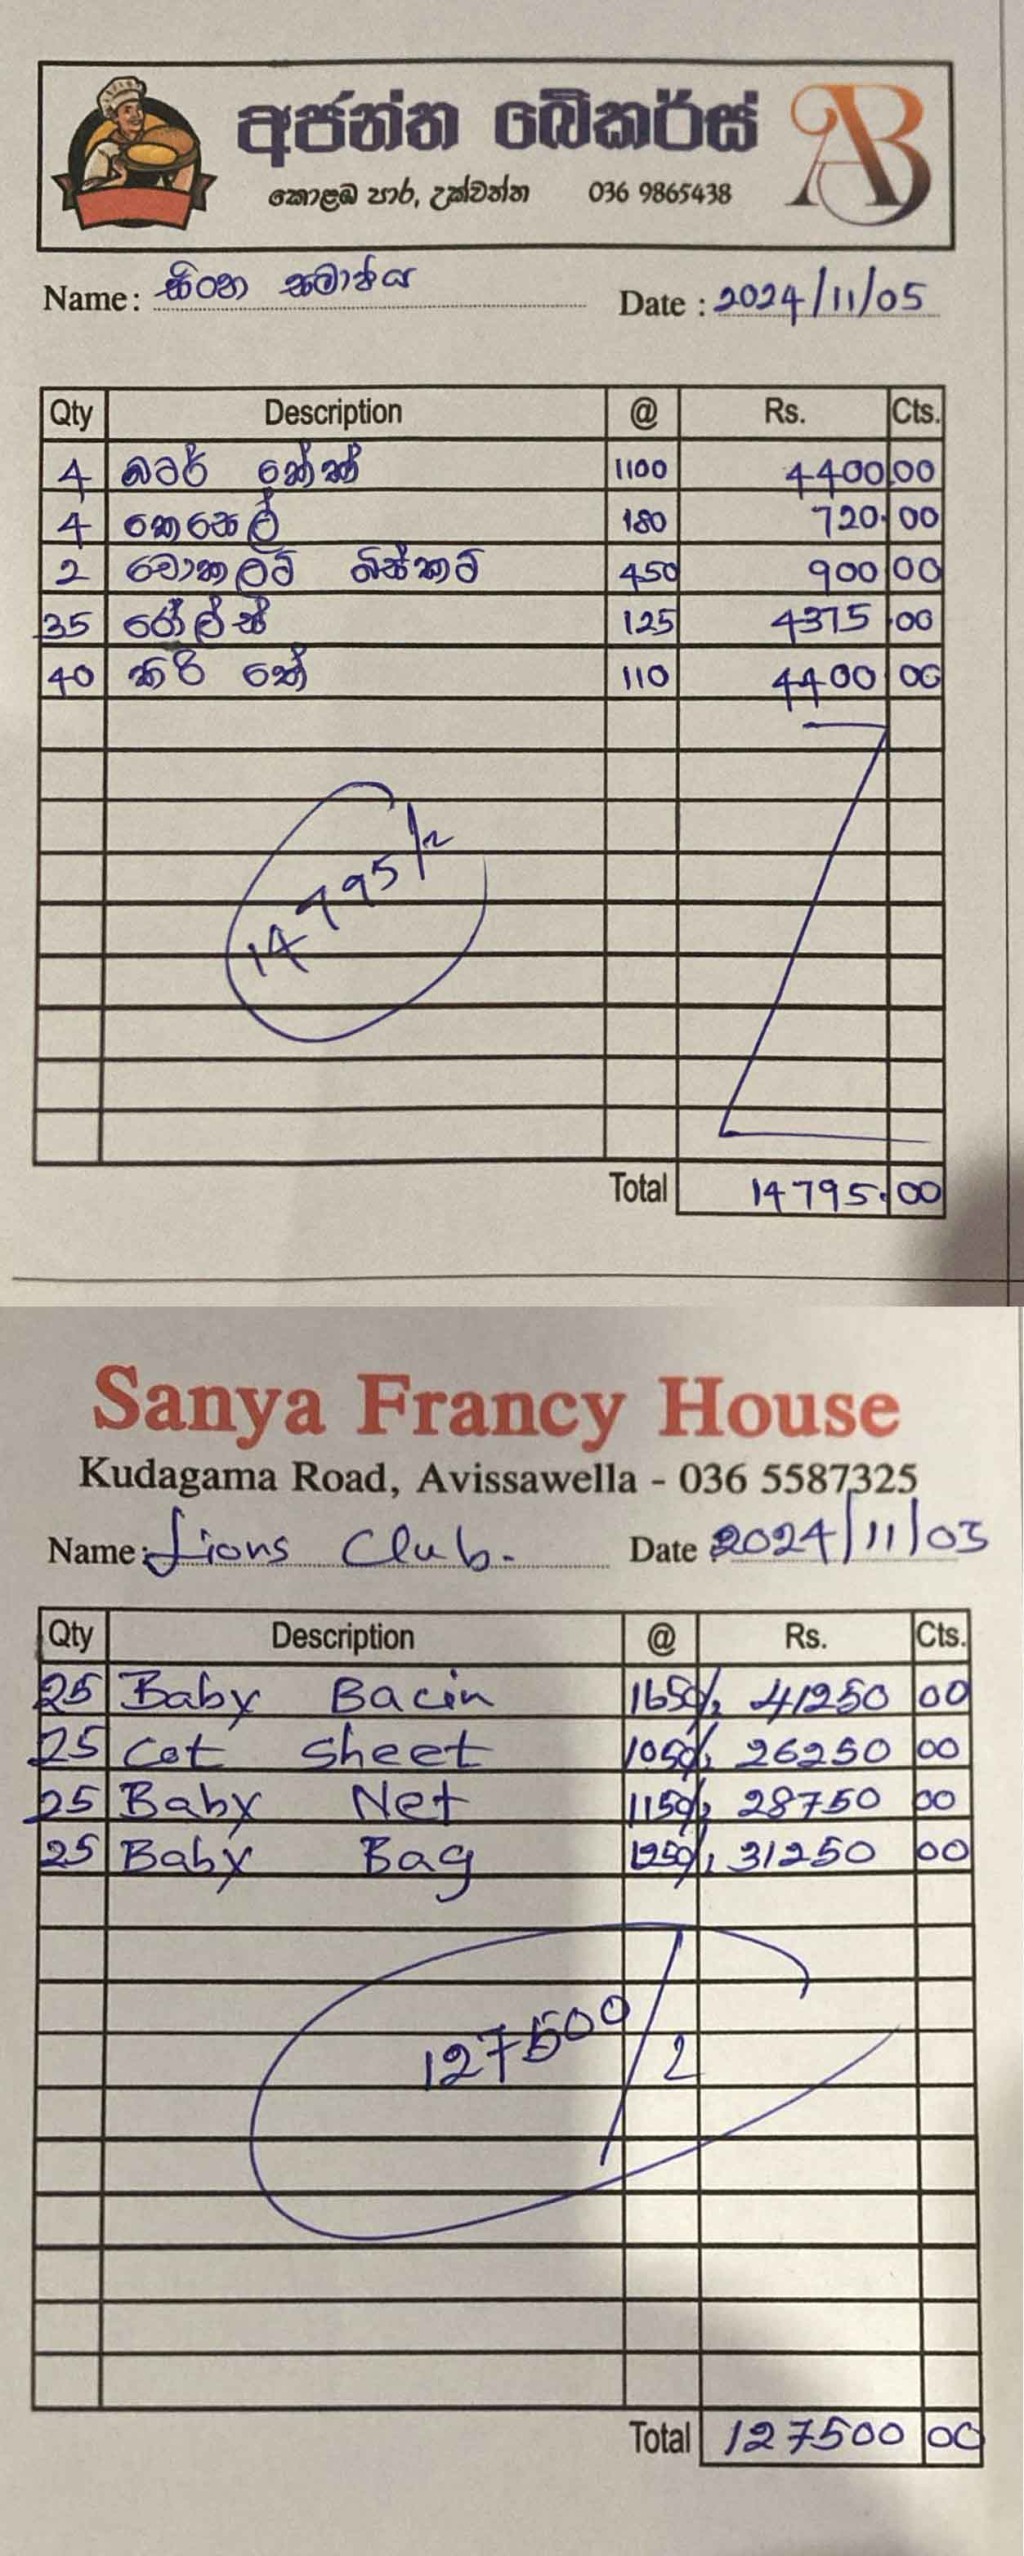 අජන්ත බේකර්ස් AB
කොළඹ පාර, උක්වත්ත 036 9865438
Name: සිංහ සමාජය Date : 2024/11/05
Qty Description @ Rs. Cts.
4 බටර් කේක් 1100 4400 00
4 කෙසෙල් 180 720. 00
2 චොකලට් බිස්කට් 450 900 00
35 රෝල්ස් 125 4375 .00
40 කිරි තේ 110 4400 00
14795/=
Total 14795. 00
Sanya Francy House
Kudagama Road, Avissawella - 036 5587325
Name: Lions Club. Date 2024/11/03
Qty Description @ Rs. Cts.
25 Baby Bacin 1650/= 41250 00
25 Cot Sheet 1050/= 26250 00
25 Baby Net 1150/= 28750 00
25 Baby Bag 1250/= 31250 00
127500/=
Total 127500 00